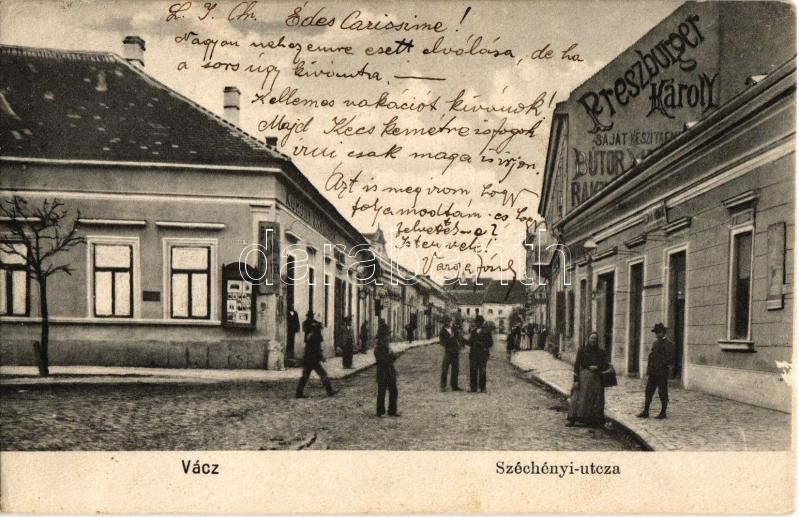 L. J. Chr. Édes Carissime!
Nagyon nehezemre esett elválása, de ha
a sors úgy kívánta. —
Kellemes vakációt kívánok!
Majd Kecskemétre is fogok
írni csak maga is írjon.
Azt is megírom hogy
folyamodtam-e s hogy
felvettek-e?
Isten veled!
Varga
Preszburger
Károly
SAJÁT KÉSZITMÉNYÜ
BÚTOR
darabanth
Vácz
Széchényi-utcza